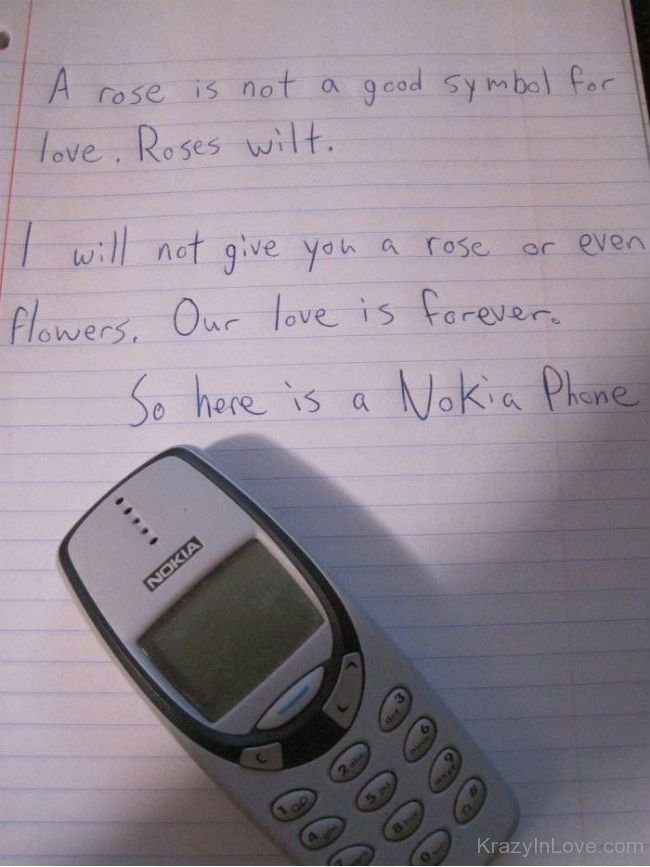 A rose is not a good symbol for
love. Roses wilt.
I will not give you a rose or even
flowers. Our love is forever.
So here is a Nokia Phone
NOKIA
C
3 def
2 abc
6 mno
1
5 jkl
9 wxyz
4 ghi
8 tuv
#
7
0
KrazyInLove.com